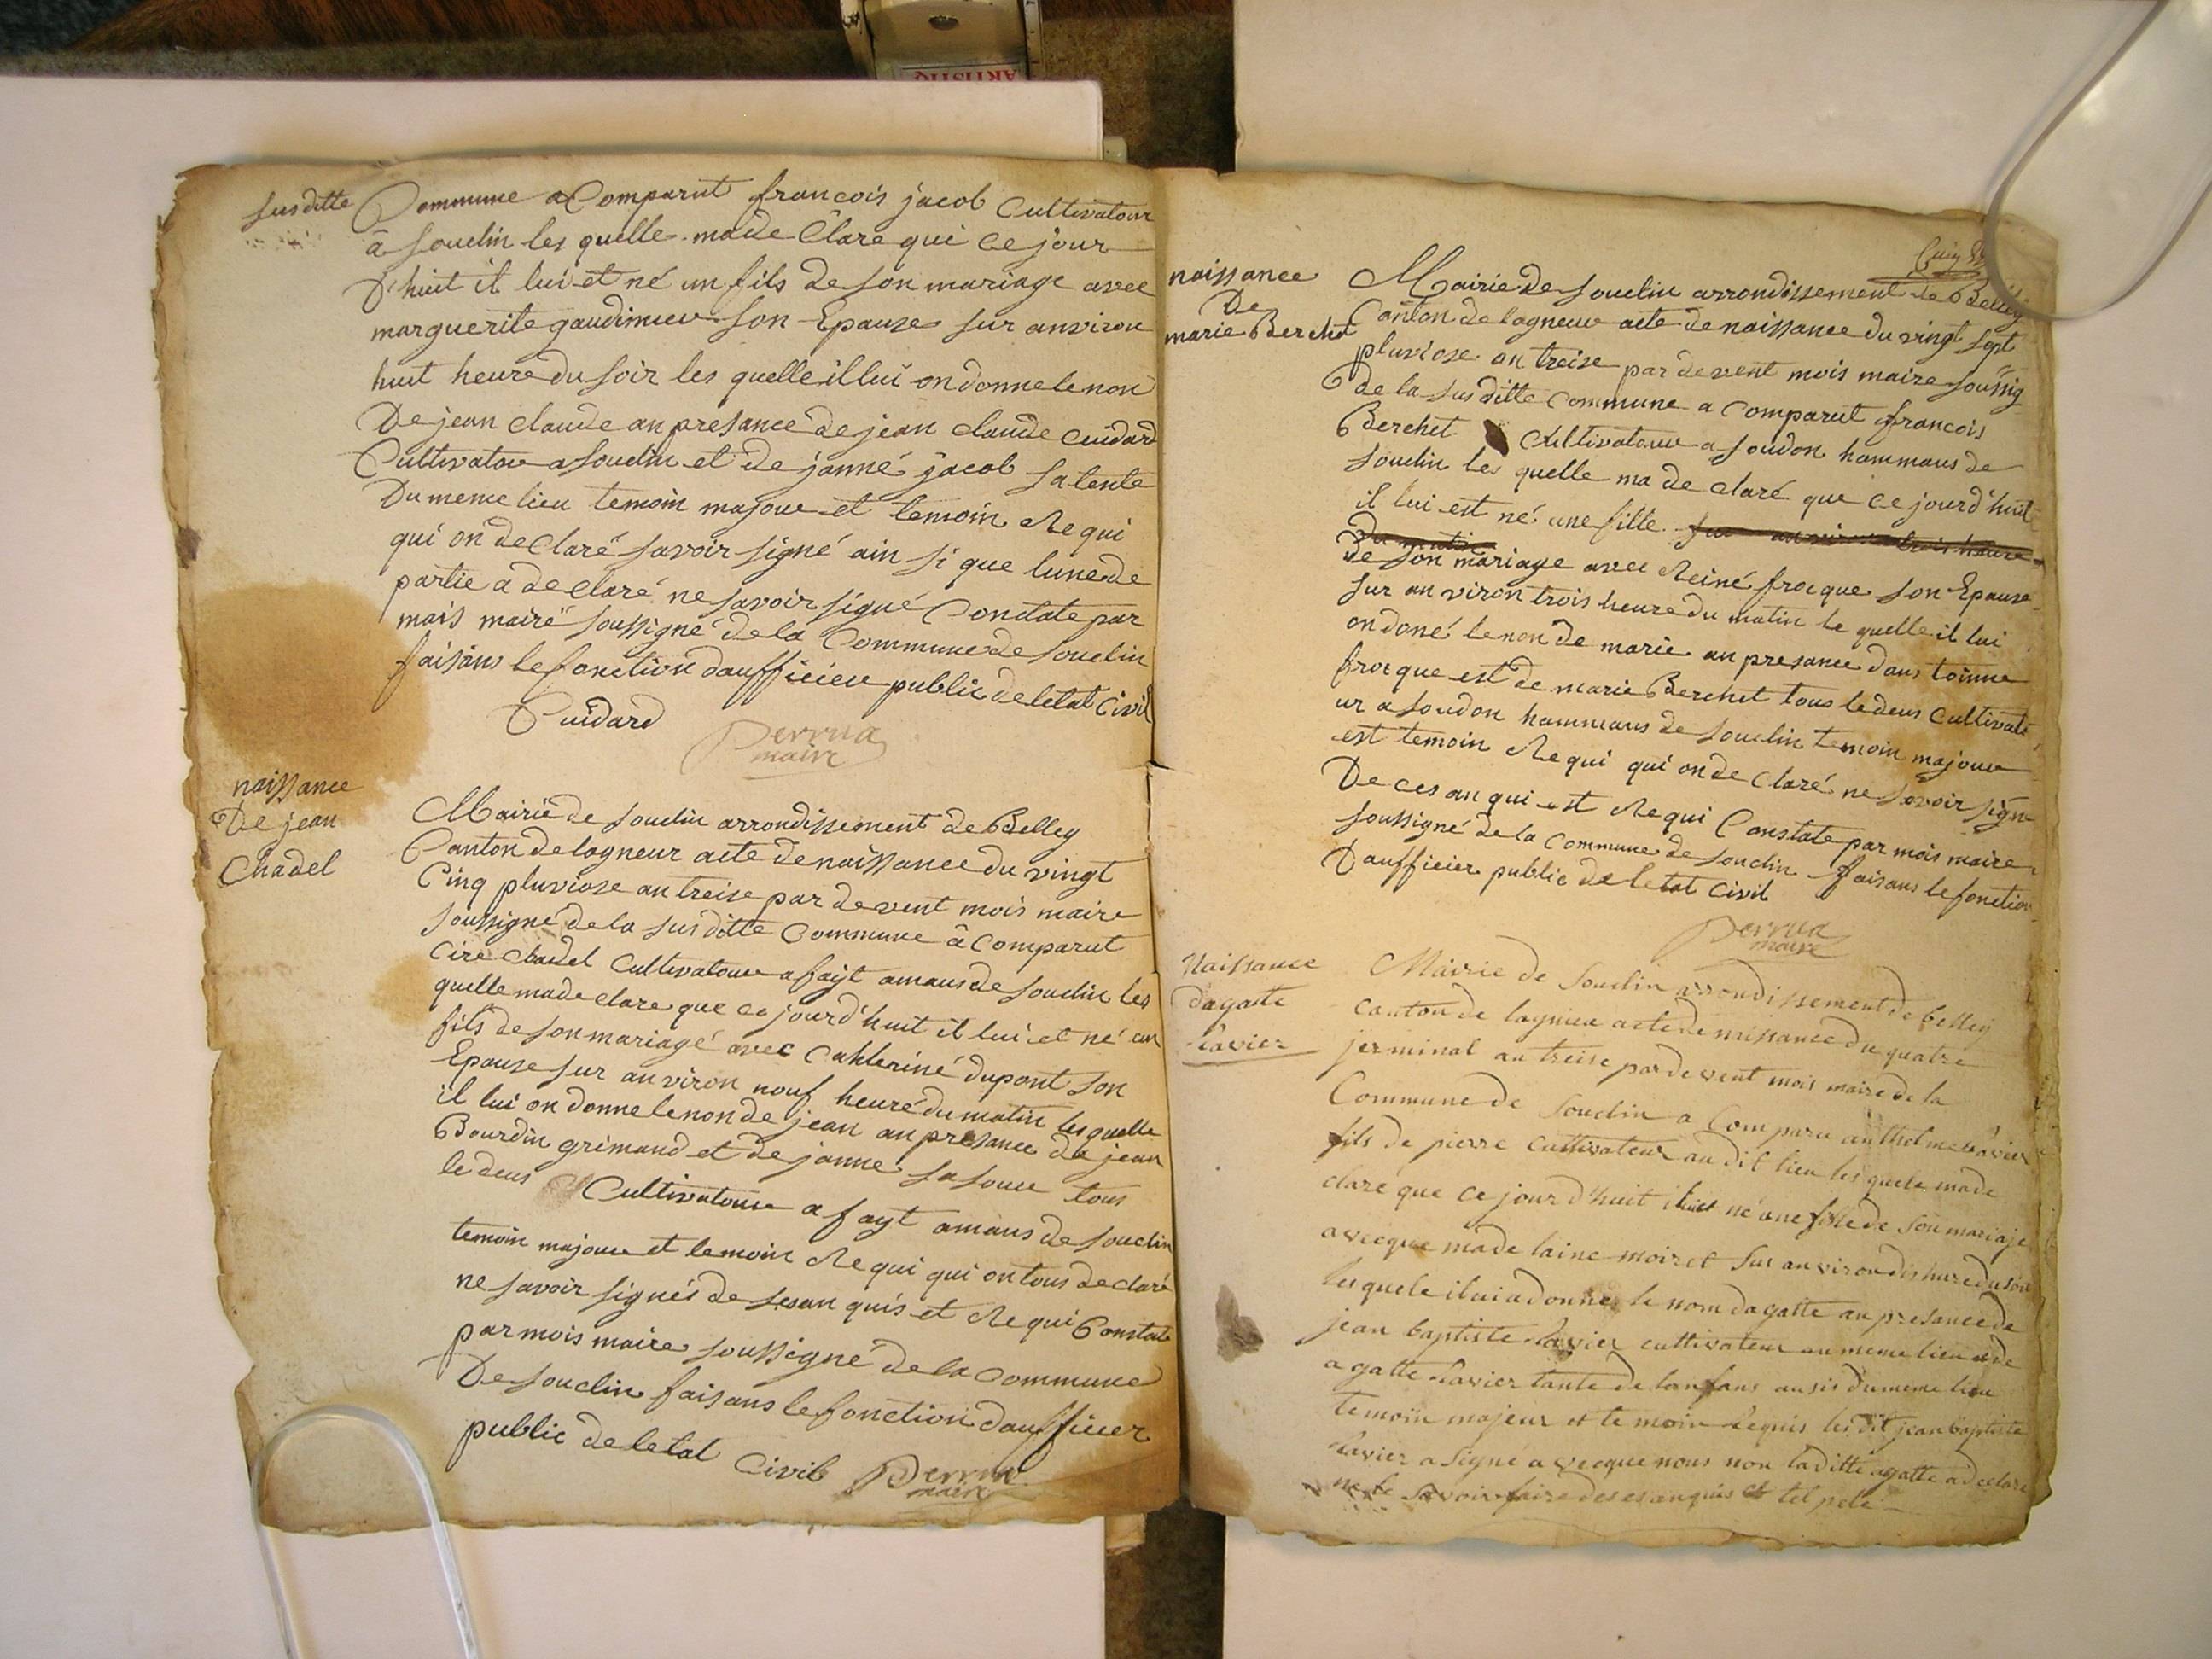 susditte Commune a Comparut francois jacob Cultivatour
â souclin les quelle made Clare qui ce jour
D'huit il lui et né un fils de son mariage avec
marguerite gaudimeu son Epause sur anviron
huit heure du soir les quelle il lui on donne le non
De jean claude an presance de jean claude cuidard
Cultivatou a souclin et de janne jacob sa tente
Du meme lieu temoin majoue et temoin Requi
qui on de Claré savoir signé ain si que lune de
partie a de Claré ne savoir signé Constate par
mais mairé soussigné de la Commune de souclin
faisans le fonction dauffiecieu public de letat Civil
Cuidard
Perrua
maire
naissance
De jean
Chadel
Mairie de souclin arrondissement de Belley
Canton de lagneur acte de naissance du vingt
Cinq pluviose an treise par de vent mois maire
soussigné de la sus ditte Commune â Comparut
Cire Chadel Cultivatoue a fayt amaus de souclin les
quelle made clare que ce jourd'huit il lui et né un
fils de son mariagé avec Cahteriné dupont son
Epause sur anviron nouf heuré du matin les quelle
il lui on donne le non de jean an presance de jean
Bourdin grimand et de janne sa soue tous
le deus Cultivatoue a fayt amaus de souclin
temoin majoue et temoin Requi qui on tous de claré
ne savoir signés de sesan quis et Requi Constate
par mois maire soussigné de la Commune
De souclin faisans le fonction dauffiuer
public de letat Civil
Perrua
maire
Cuiq
naissance
De
marie Berchet
Mairie de souclin arrondissement de Belley
Canton de lagneuv acte de naissance du vingt sept
pluviose an treise par de vent mois maire soussig
de la sus ditte Commune a Comparut francois
Berchet Cultivatoue a soudon hammaus de
souclin les quelle ma de claré que ce jourd'huit
il lui est né une fille sur anviron trois heure
Du matin
de son mariage avec Reiné frocque son Epause
sur anviron trois heure du matin le quelle il lui
on doné le non de marie an presance dans toinne
frocque est de marie Berchet tous le deus Cultivate
ur a soudon hammaus de souclin temoin majoue
est temoin Requi qui on de Claré ne savoir sign
De ces an qui est Requi Constate par mois maire
soussigné de la Commune de souclin faisans le fonction
Daufficier public de letat Civil
Perrua
maire
Naissance
dagatte
Ravier
Mairie de Souclin arrondissement de belley
canton de lagnieu acte de naissance du quatre
jerminal an treise par de vent mois maire de la
Commune de Souclin a Comparu anthelme Ravier
fils de pierre cultivateur au dit lieu les quele made
claré que ce jour d'huit il lui et né une fille de son mariaje
avecque made laine moiret sur anviron dis hure du soir
les quele il lui a donné le nom dagatte an presance de
jean baptiste Ravier cultivateur au meme lieu et de
agatte Ravier tante de lanfans ausis du meme lieu
temoin majeur et temoin Requis les dit jean baptiste
Ravier a signé avecque nous non laditte agatte a declaré
ne le savoir faire de ses anquis et